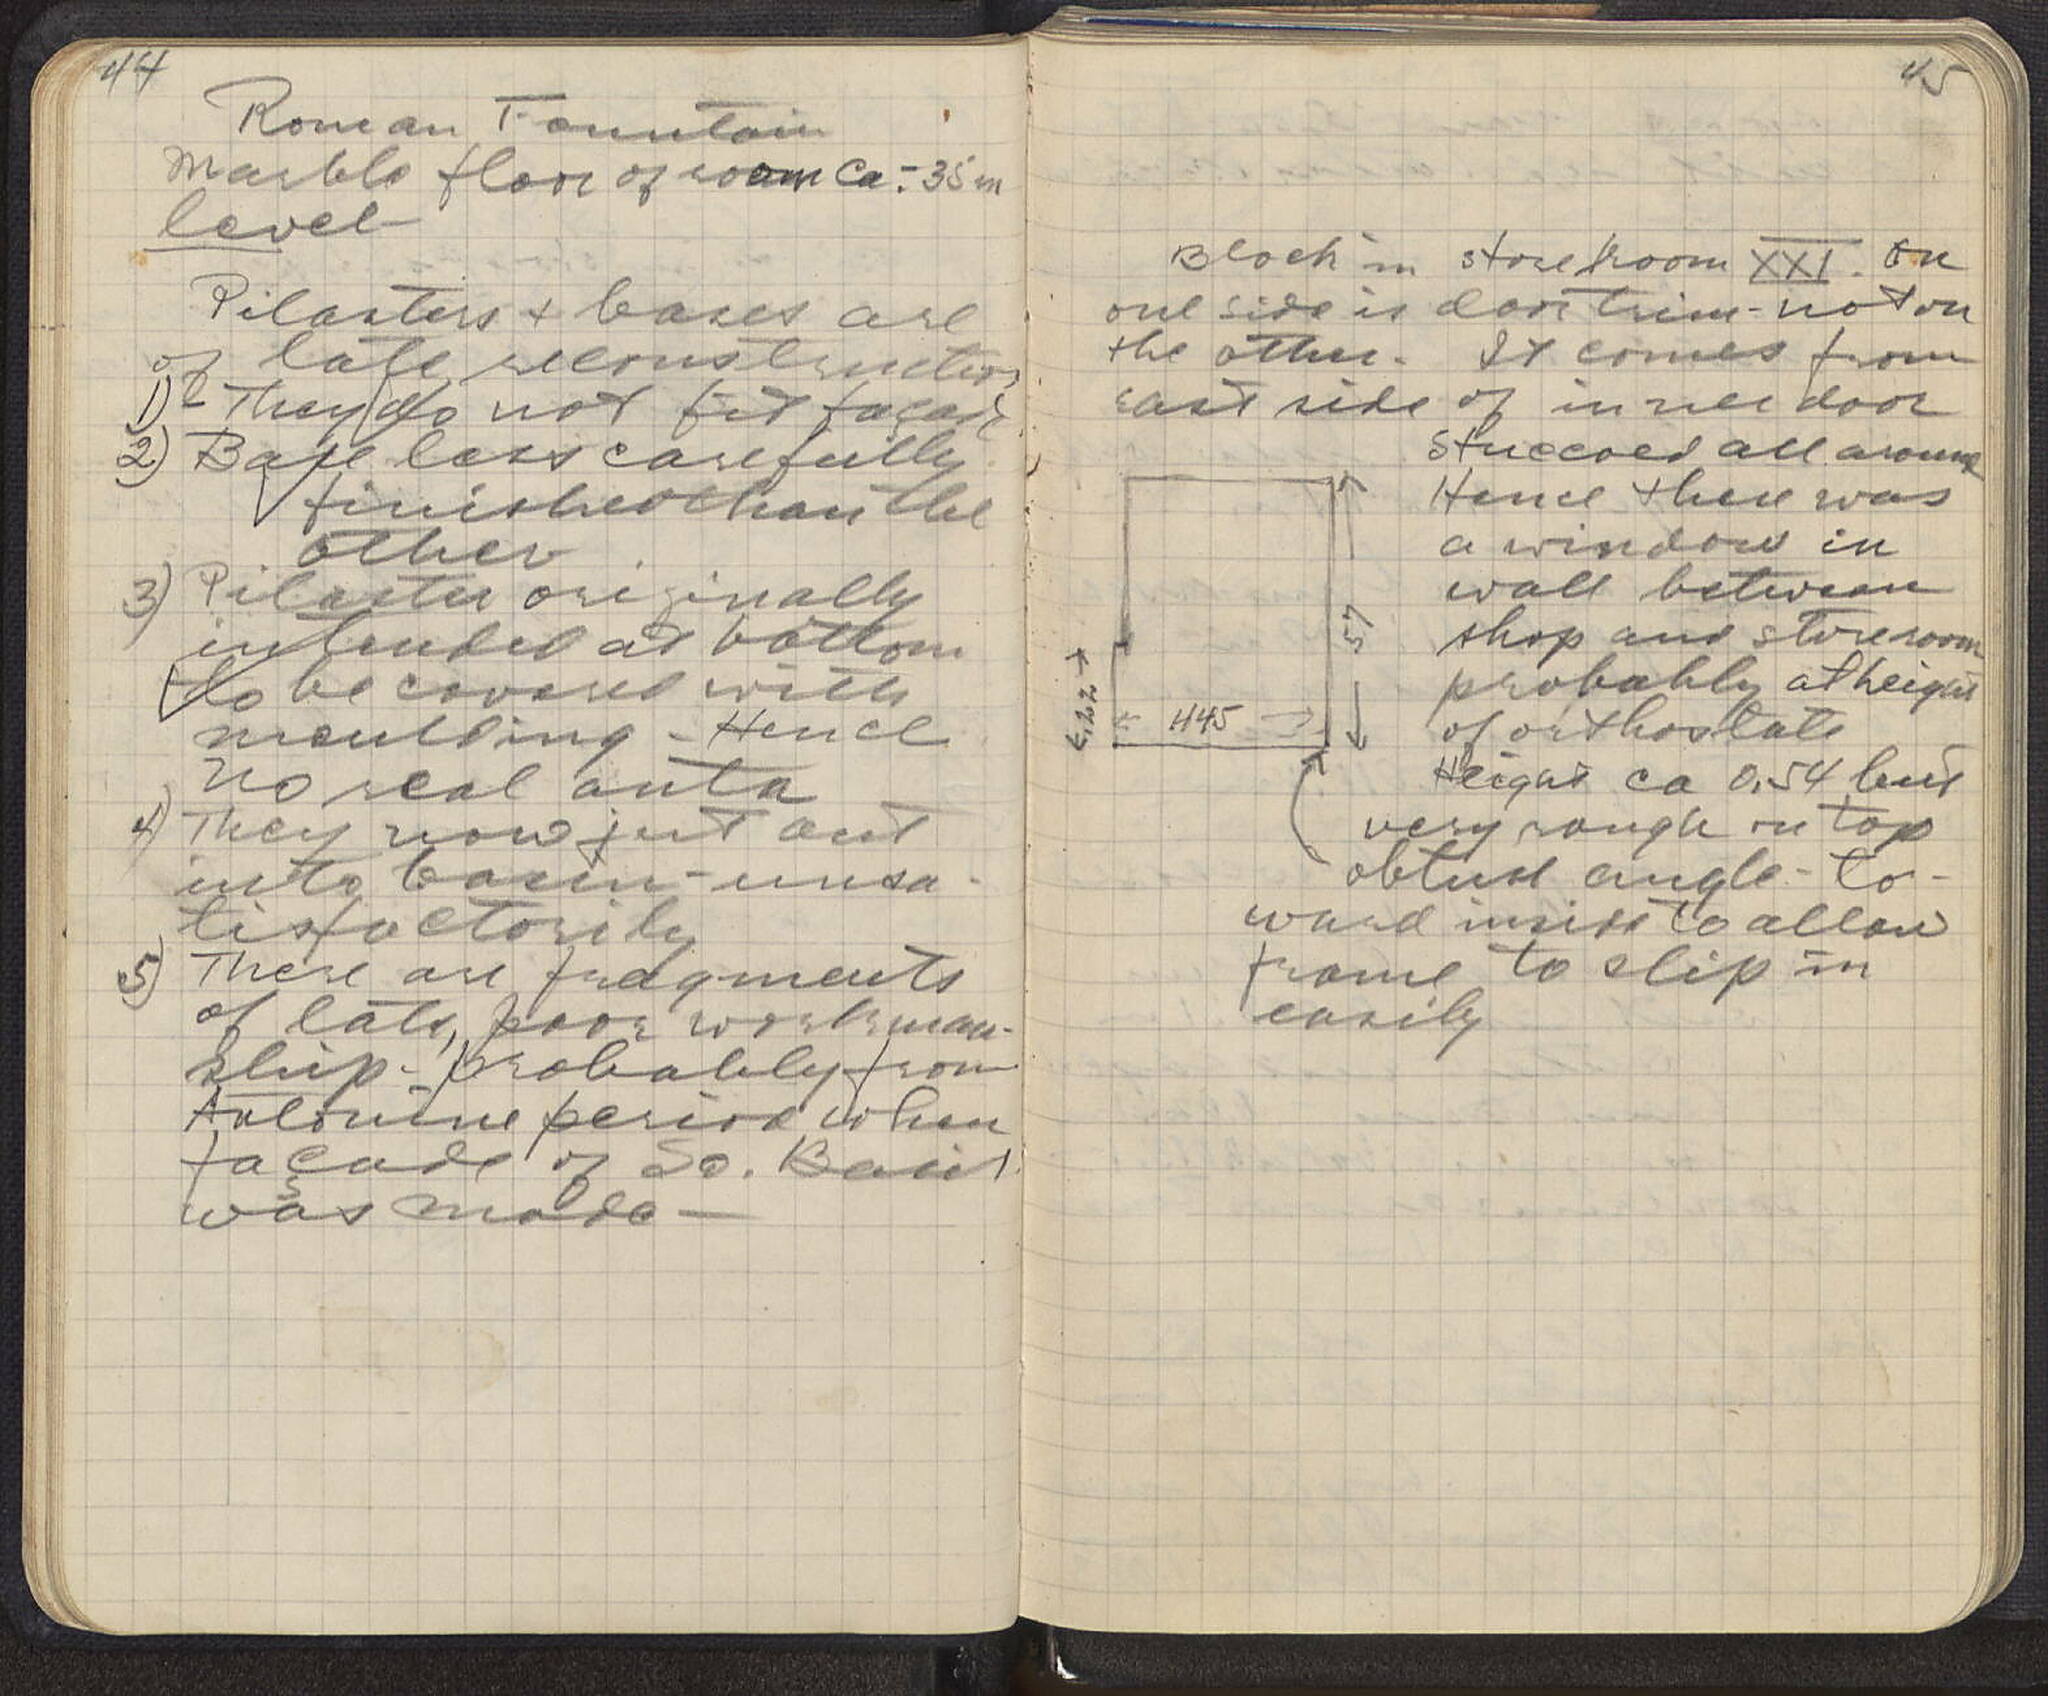 44
Roman Fountain
Marble floor of room ca. -35 m
level
Pilasters + bases are
of late reconstruction
1) They do not fit façade
2) Base less carefully
finished than the
other
3) Pilaster originally
intended at bottom
to be covered with
moulding - Hence
no real anta
4) They now jut out
into basin - unsa-
tisfactorily
5) There are fragments
of late, poor workman-
ship - probably from
Antonine period when
façade of So. Basil.
was made -
45
Block in storeroom XXI. On
one side is door trim - not on
the other. It comes from
east side of inner door
Stuccoed all around
Hence there was
a window in
wall between
shop and storeroom
probably at height
of orthostate
Height ca 0.54 but
very rough on top
obtuse angle - to-
ward inside to allow
frame to slip in
easily
.57
.122
445